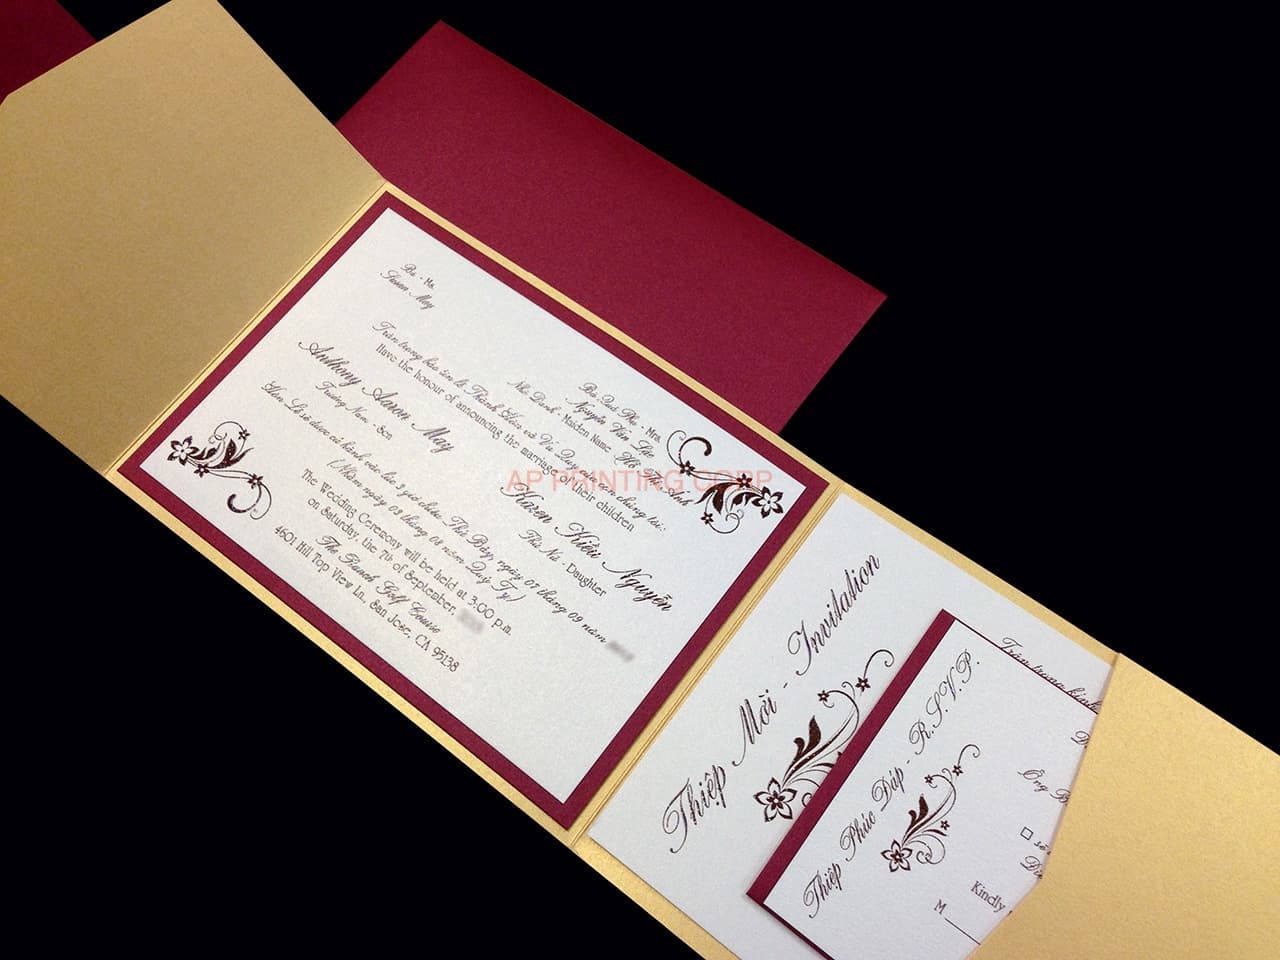 Bà - Ms.
Susan May
Bà Quả Phụ - Mrs.
Nguyễn Văn Lắc
Nhũ Danh - Maiden Name Hồ Thị Anh
Trân trọng báo tin lễ Thành Hôn và Vu Quy con chúng tôi:
Have the honour of announcing the marriage of their children
Anthony Aaron May
Trưởng Nam - Son
Karen Kiều Nguyễn
Thứ Nữ - Daughter
Hôn Lễ sẽ được cử hành vào lúc 3 giờ chiều Thứ Bảy, ngày 07 tháng 09 năm
(Nhằm ngày 03 tháng 08 năm Quý Tỵ)
The Wedding Ceremony will be held at 3:00 p.m.
on Saturday, the 7th of September,
The Ranch Golf Course
4601 Hill Top View Ln., San Jose, CA 95138
AP PRINTING CORP
Thiệp Mời - Invitation
Trân trọng kính
Thiệp Phúc Đáp - R.S.V.P.
Ông B
sẽ
Kindly
M